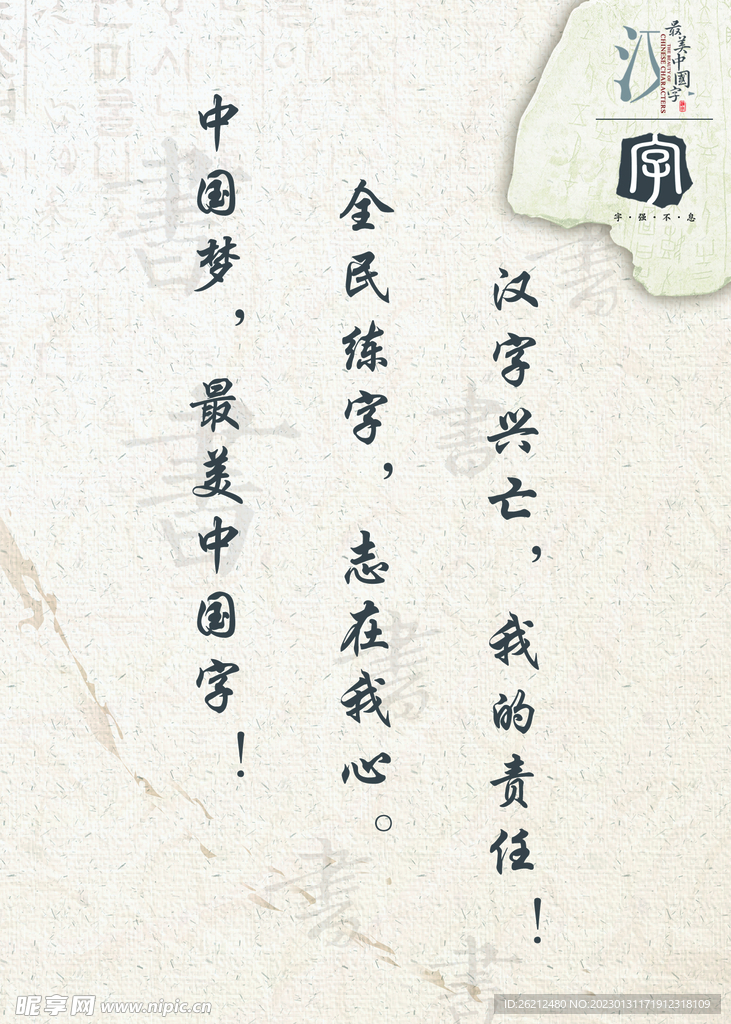 中国梦，最美中国字！
全民练字，志在我心。
汉字兴亡，我的责任！
汉
最美中国字
THE BEAUTY OF
CHINESE CHARACTERS
字
字·强·不·息
書
書
書
書
書
書
書
昵享网 www.nipic.cn
ID:26212480 NO:20230131171912318109